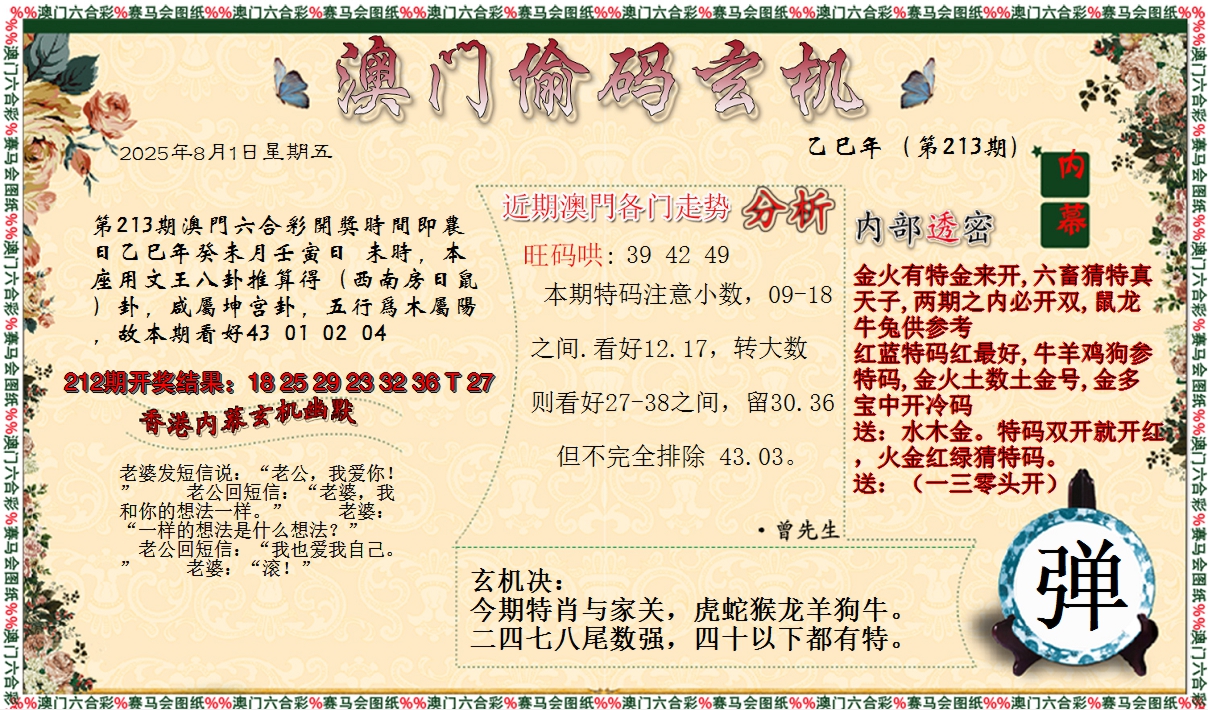 %%澳门六合彩%赛马会图纸%%澳门六合彩%赛马会图纸%%澳门六合彩%赛马会图纸%%澳门六合彩%赛马会图纸%%澳门六合彩%赛马会图纸%%澳门六合彩%赛马会图纸%%
澳门偷码玄机
2025年8月1日星期五
乙巳年（第213期）
内
幕
第213期澳門六合彩開獎時間即農
日乙巳年癸未月壬寅日 未時，本
座用文王八卦推算得（西南房日鼠
）卦，咸屬坤宫卦，五行爲木屬陽
，故本期看好43 01 02 04
212期开奖结果：18 25 29 23 32 36 T 27
香港内幕玄机幽默
老婆发短信说：“老公，我爱你！
” 老公回短信：“老婆，我
和你的想法一样。” 老婆：
“一样的想法是什么想法？”
老公回短信：“我也爱我自己。
” 老婆：“滚！”
近期澳門各门走势 分析
旺码哄: 39 42 49
本期特码注意小数，09-18
之间.看好12.17，转大数
则看好27-38之间，留30.36
但不完全排除 43.03。
·曾先生
内部透密
金火有特金来开,六畜猜特真
天子,两期之内必开双,鼠龙
牛兔供参考
红蓝特码红最好,牛羊鸡狗参
特码,金火土数土金号,金多
宝中开冷码
送：水木金。特码双开就开红
，火金红绿猜特码。
送：（一三零头开）
玄机决：
今期特肖与家关，虎蛇猴龙羊狗牛。
二四七八尾数强，四十以下都有特。
弹
%%澳门六合彩%赛马会图纸%%澳门六合彩%赛马会图纸%%澳门六合彩%赛马会图纸%%澳门六合彩%赛马会图纸%%澳门六合彩%赛马会图纸%%澳门六合彩%赛马会图纸%%
%%澳门六合彩%赛马会图纸%%澳门六合彩%赛马会图纸%%澳门六合彩%赛马会图纸%%澳门六合彩
%%澳门六合彩%赛马会图纸%%澳门六合彩%赛马会图纸%%澳门六合彩%赛马会图纸%%澳门六合彩